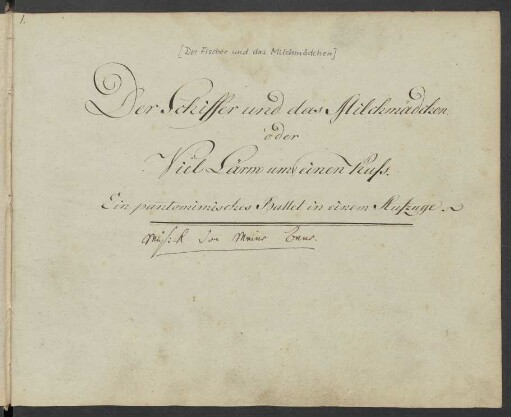 1.
[Der Fischer und das Milchmädchen]
Der Schiffer und das Milchmädchen
oder
Viel Lärm um einen Kuss.
Ein pantomimisches Ballet in einem Aufzuge.
Musik von